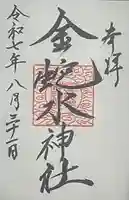 奉拝
金蛇水神社
令和七年八月三十一日